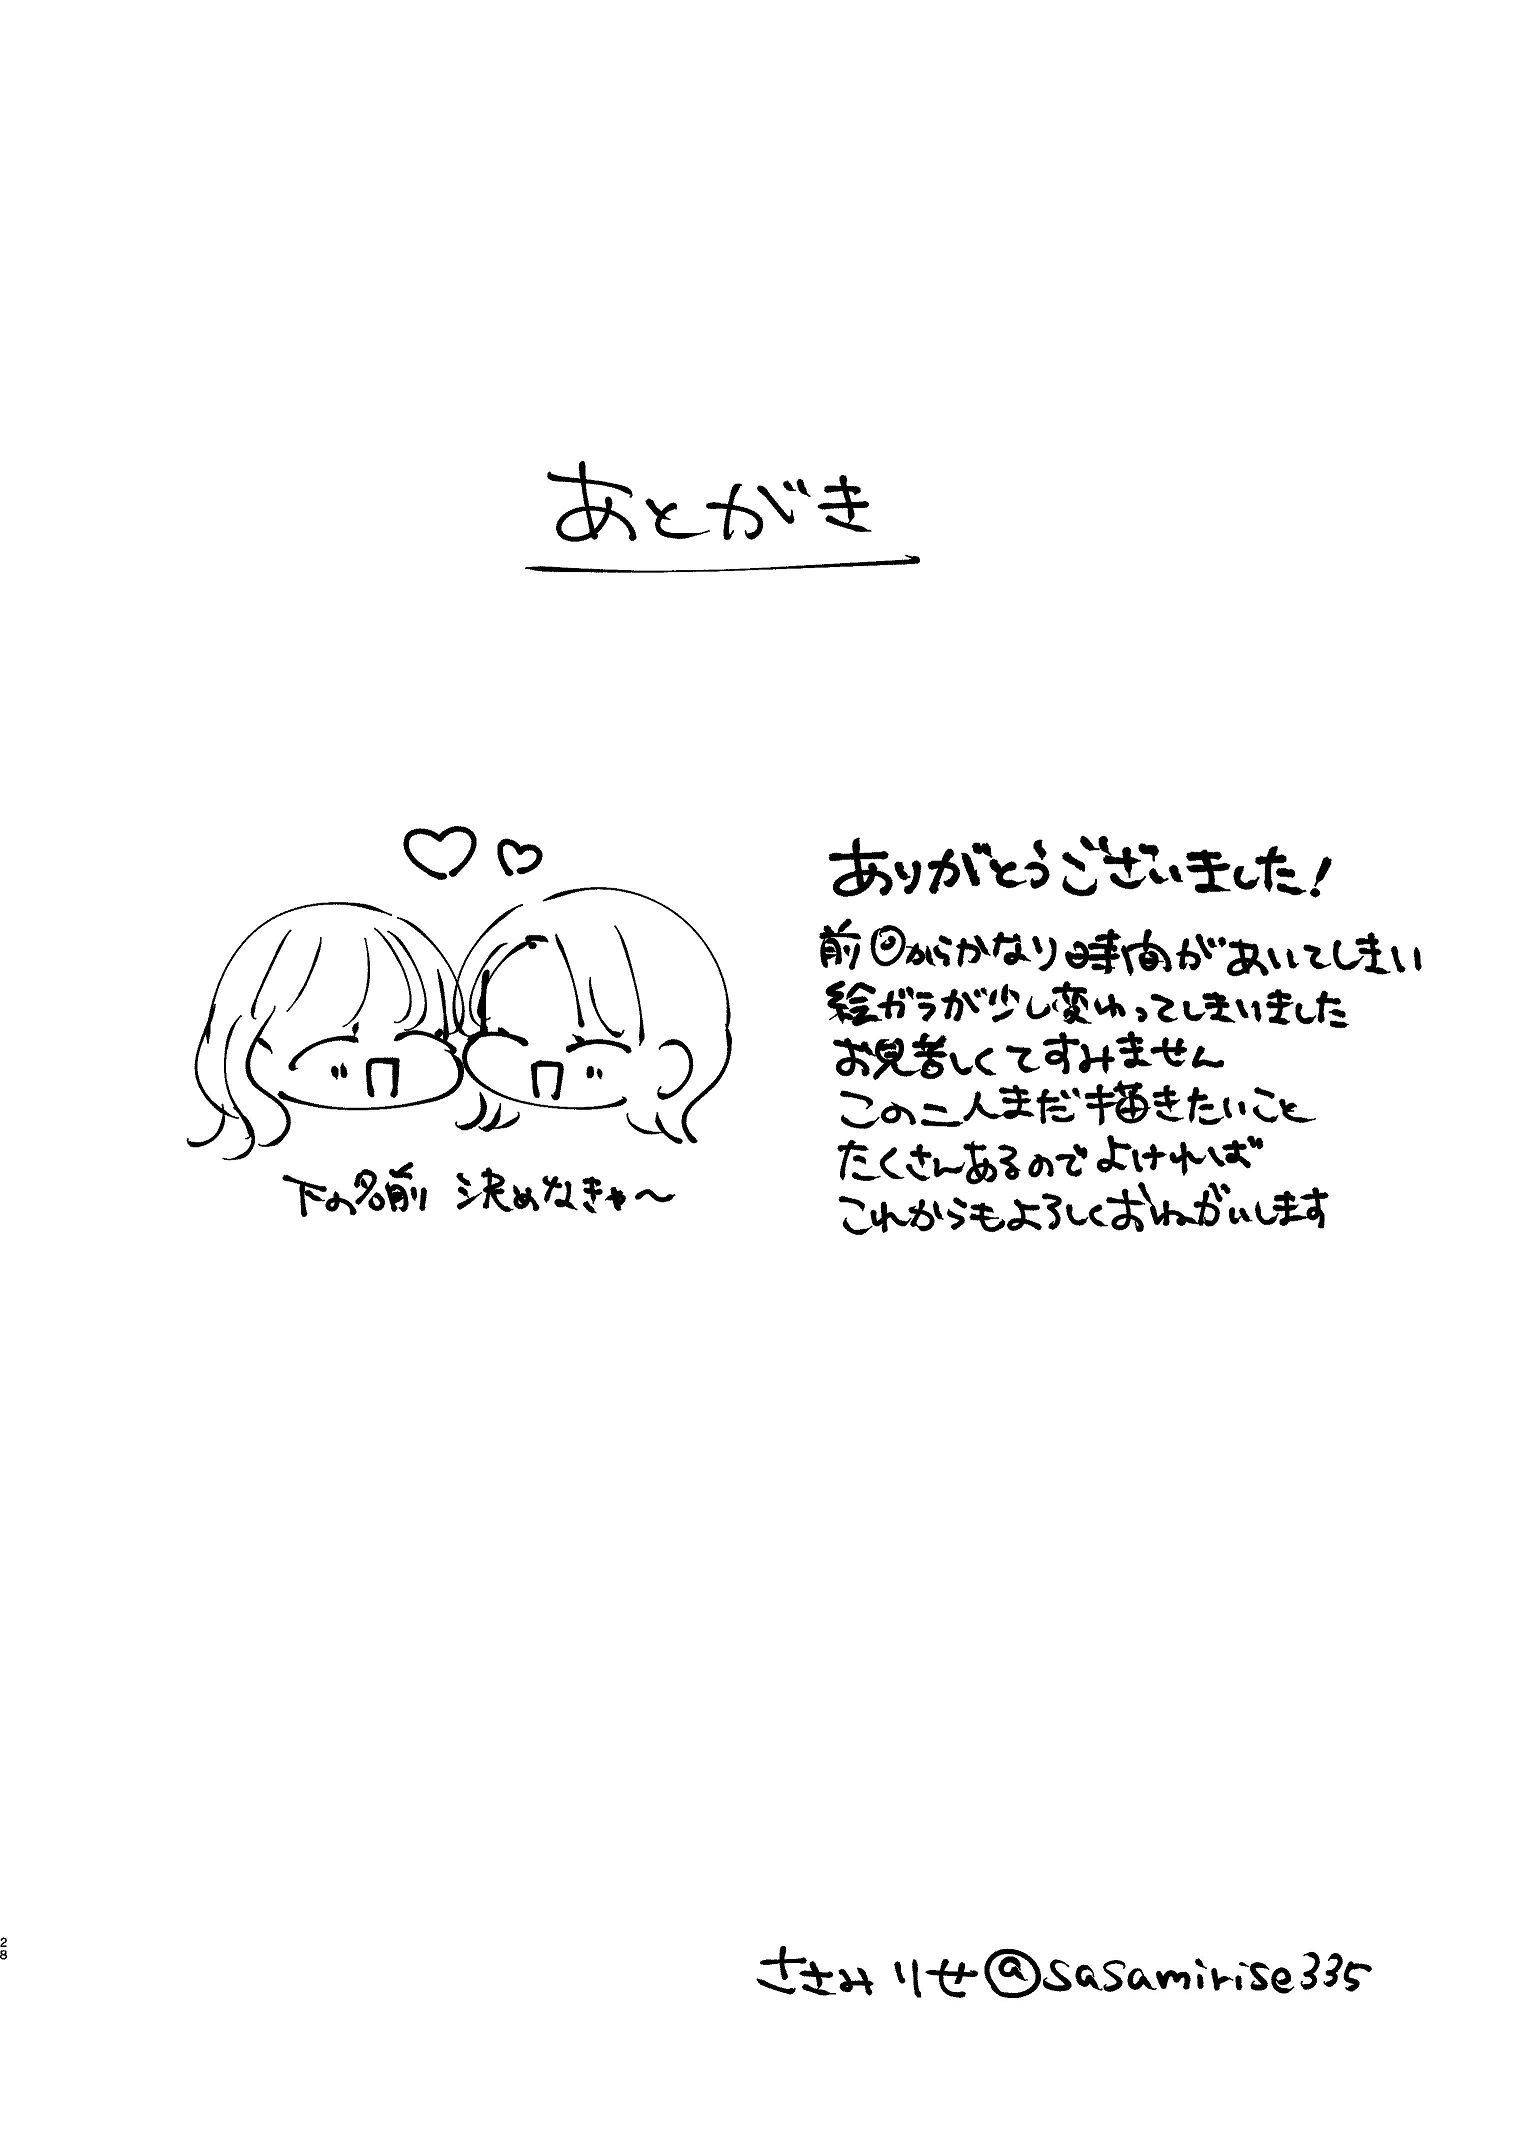 あとがき
ありがとうございました!
前回からかなり時間があいてしまい
絵ガラが少し変わってしまいました
お見苦しくてすみません
この二人まだ描きたいこと
たくさんあるのでよければ
これからもよろしくおねがいします
下の名前 決めなきゃ〜
ささみりせ@sasamirise335
28